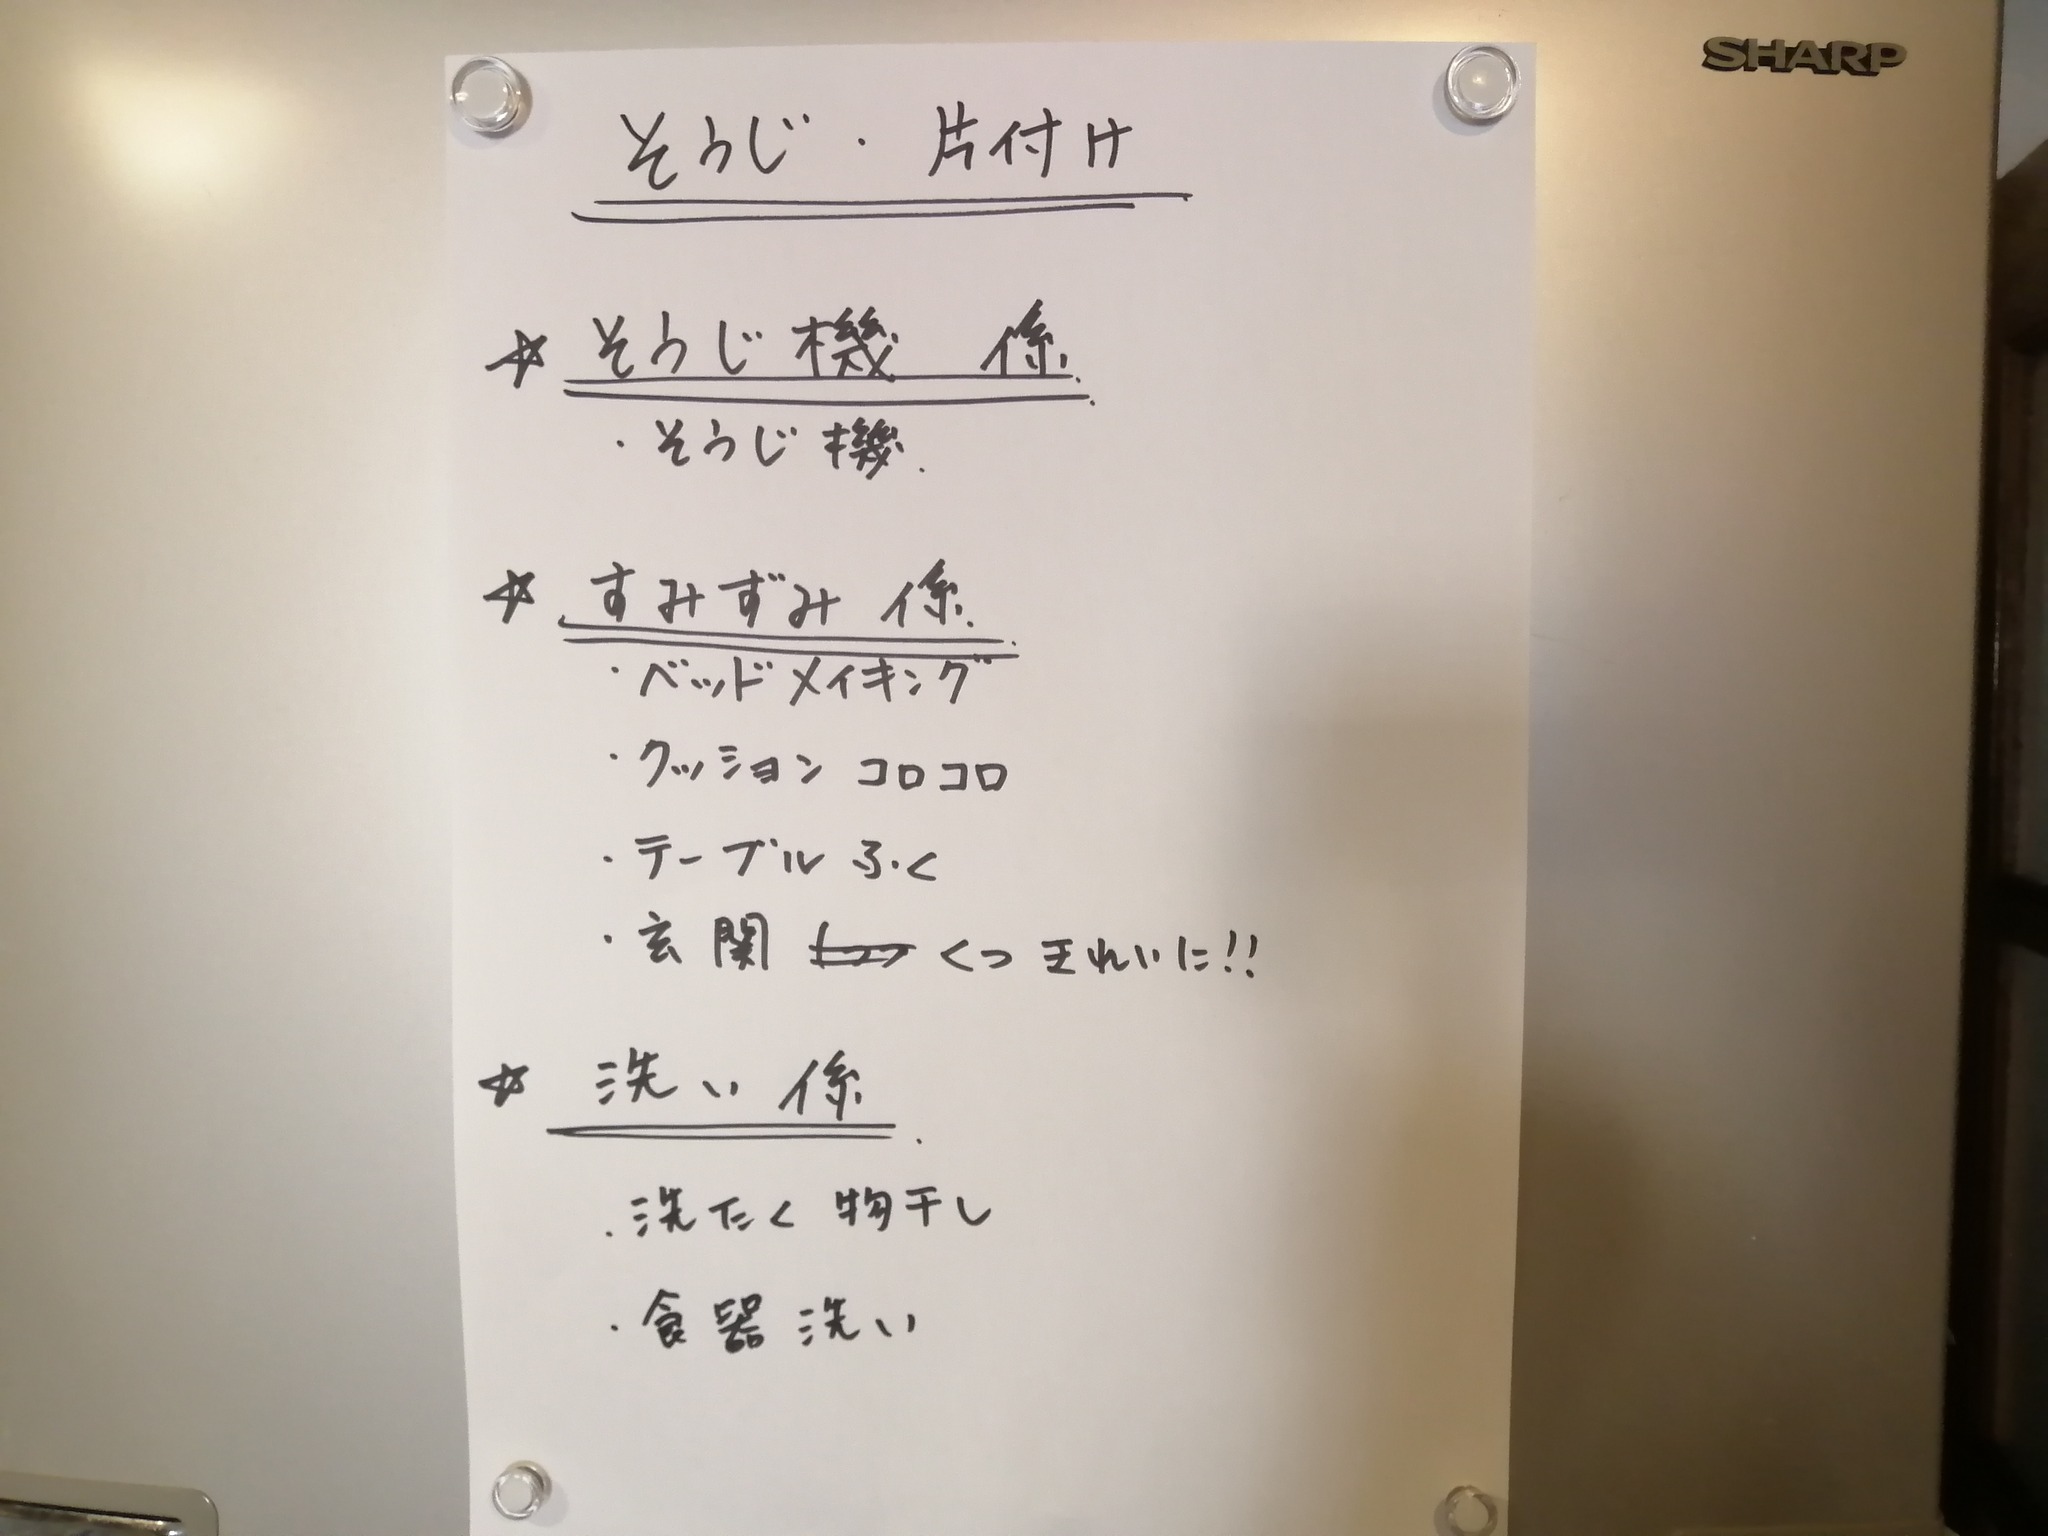 SHARP
そうじ・片付け
☆ そうじ機 係
・そうじ機
☆ すみずみ 係
・ベッドメイキング
・クッション コロコロ
・テーブル ふく
・玄関 くつ きれいに!!
☆ 洗い 係
・洗たく 物干し
・食器 洗い